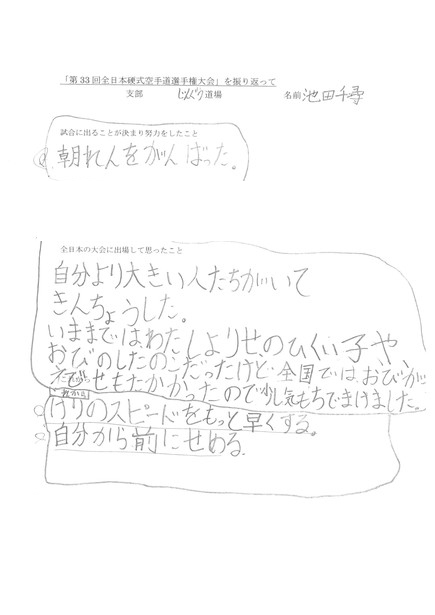 「第33回全日本硬式空手道選手権大会」を振り返って
支部 じんぶり道場 名前 池田千尋
試合に出ることが決まり努力をしたこと
朝れんをがんばった。
全日本の大会に出場して思ったこと
自分より大きい人たちがいて
きんちょうした。
いままでは、わたしよりせのひくい子や
おびのしたのこだったけど、全国では、おびが
せもたかかったので少し気もちでまけました。
けりのスピードをもっと早くする。
自分から前にせめる